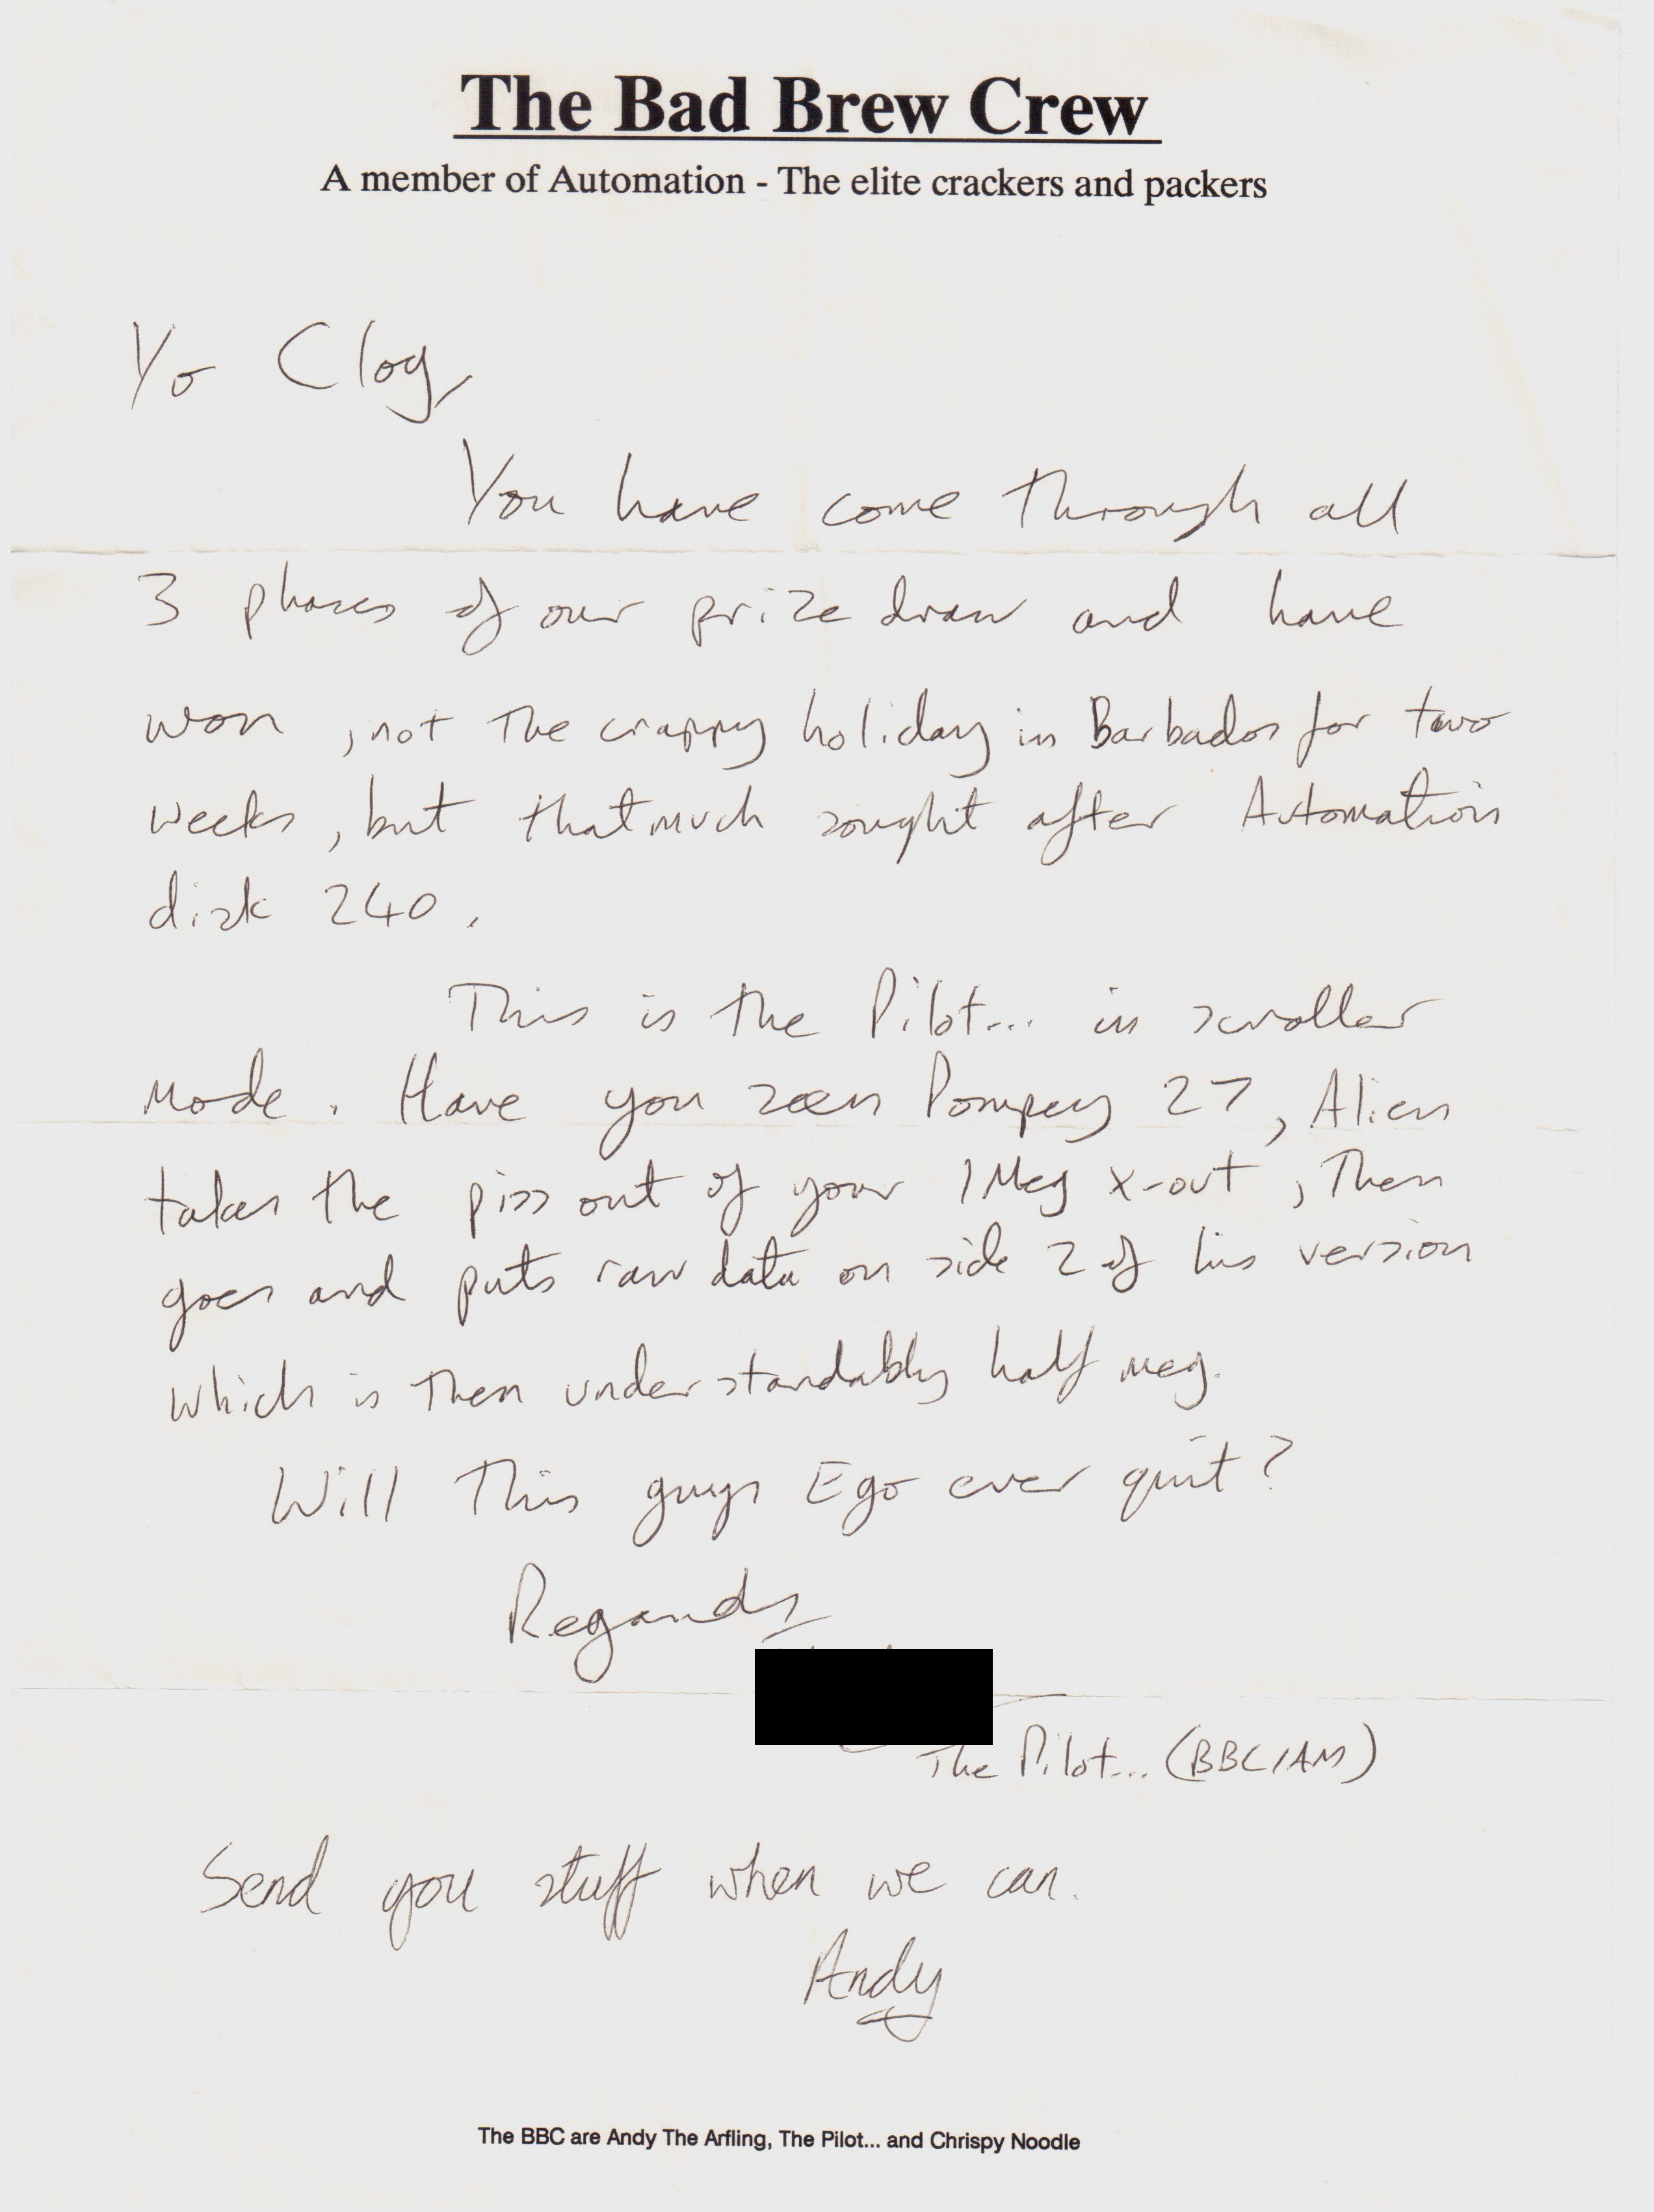 The Bad Brew Crew
A member of Automation - The elite crackers and packers
Yo Clog,
You have come through all
3 phases of our prize draw and have
won, not the crappy holiday in Barbados for two
weeks, but that much sought after Automation
disk 240.
This is the Pilot... in scroller
mode. Have you seen Pompey 27, Alien
takes the piss out of your 1 Meg x-out, then
goes and puts raw data on side 2 of his version
which is then understandably half meg.
Will this guys Ego ever quit?
Regards
The Pilot... (BBC/AM)
Send you stuff when we can.
Andy
The BBC are Andy The Arfling, The Pilot... and Chrispy Noodle